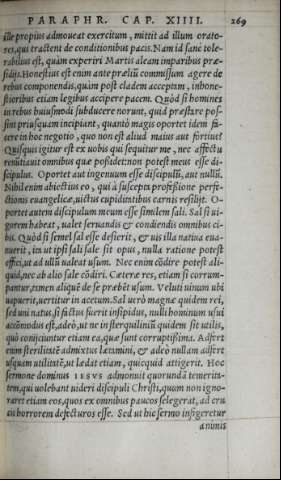 PARAPHR. CAP. XIIII. 269
ille propius admoueat exercitum, mittit ad illum orato-
res, qui tractent de conditionibus pacis. Nam id sanè tole-
rabilius est, quàm experiri Martis aleam imparibus præ-
sidijs. Honestius est enim ante prælium commissum agere de
rebus componendis, quàm post cladem acceptam, inhone-
stioribus etiam legibus accipere pacem. Quòd si homines
in rebus huiusmodi subducere norunt, quid præstare pos-
sint priusquam incipiant, quantò magis oportet idem fa-
cere in hoc negotio, quo non est aliud maius aut fortius?
Quisquis igitur est ex uobis qui sequitur me, nec affectu
renūtiauit omnibus quæ possidet, non potest meus esse di-
scipulus. Oportet aut ingenuum esse discipulū, aut nullū.
Nihil enim abiectius eo, qui à suscepta professione perfe-
ctionis euangelicæ, uictus cupiditatibus carnis resilijt. O-
portet autem discipulum meum esse similem sali. Sal si ui-
gorem habeat, ualet seruandis & condiendis omnibus ci-
bis. Quòd si semel sal esse desierit, & uis illa natiua eua-
nuerit, ita ut ipsi sali sale sit opus, nulla ratione potest
effici, ut ad ullū ualeat usum. Nec enim cōdire potest ali-
quid, nec ab alio sale cōdiri. Cæteræ res, etiam si corrum-
pantur, tamen aliquē de se præbēt usum. Veluti uinum ubi
uapuerit, uertitur in acetum. Sal uerò magnæ quidem rei,
sed uni natus, si factus fuerit insipidus, nulli hominum usui
accōmodus est, adeò, ut ne in sterquiliniū quidem sit utilis,
quò conijciuntur etiam ea, quæ sunt corruptissima. Adfert
enim sterilitatē admixtus lætamini, & adeò nullam adfert
usquam utilitatē, ut lædat etiam, quicquid attigerit. Hoc
sermone dominus IESVS admonuit quorundā temerita-
tem, qui uolebant uideri discipuli Christi, quum non igno-
raret etiam eos, quos ex omnibus paucos selegerat, ad cru
cis horrorem defecturos esse. Sed ut hic sermo infigeretur
animis